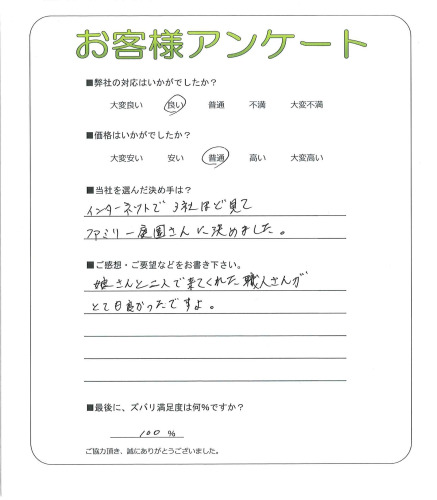 お客様アンケート
■弊社の対応はいかがでしたか?
大変良い 良い 普通 不満 大変不満
■価格はいかがでしたか?
大変安い 安い 普通 高い 大変高い
■当社を選んだ決め手は?
インターネットで3社ほど見て
ファミリー庭園さんに決めました。
■ご感想・ご要望などをお書き下さい。
娘さんと二人で来てくれた職人さんが
とても良かったですよ。
■最後に、ズバリ満足度は何%ですか?
100%
ご協力頂き、誠にありがとうございました。